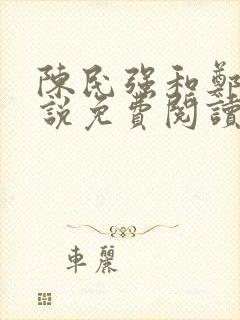 陳民强和鄭
說免費閱讀
車麗